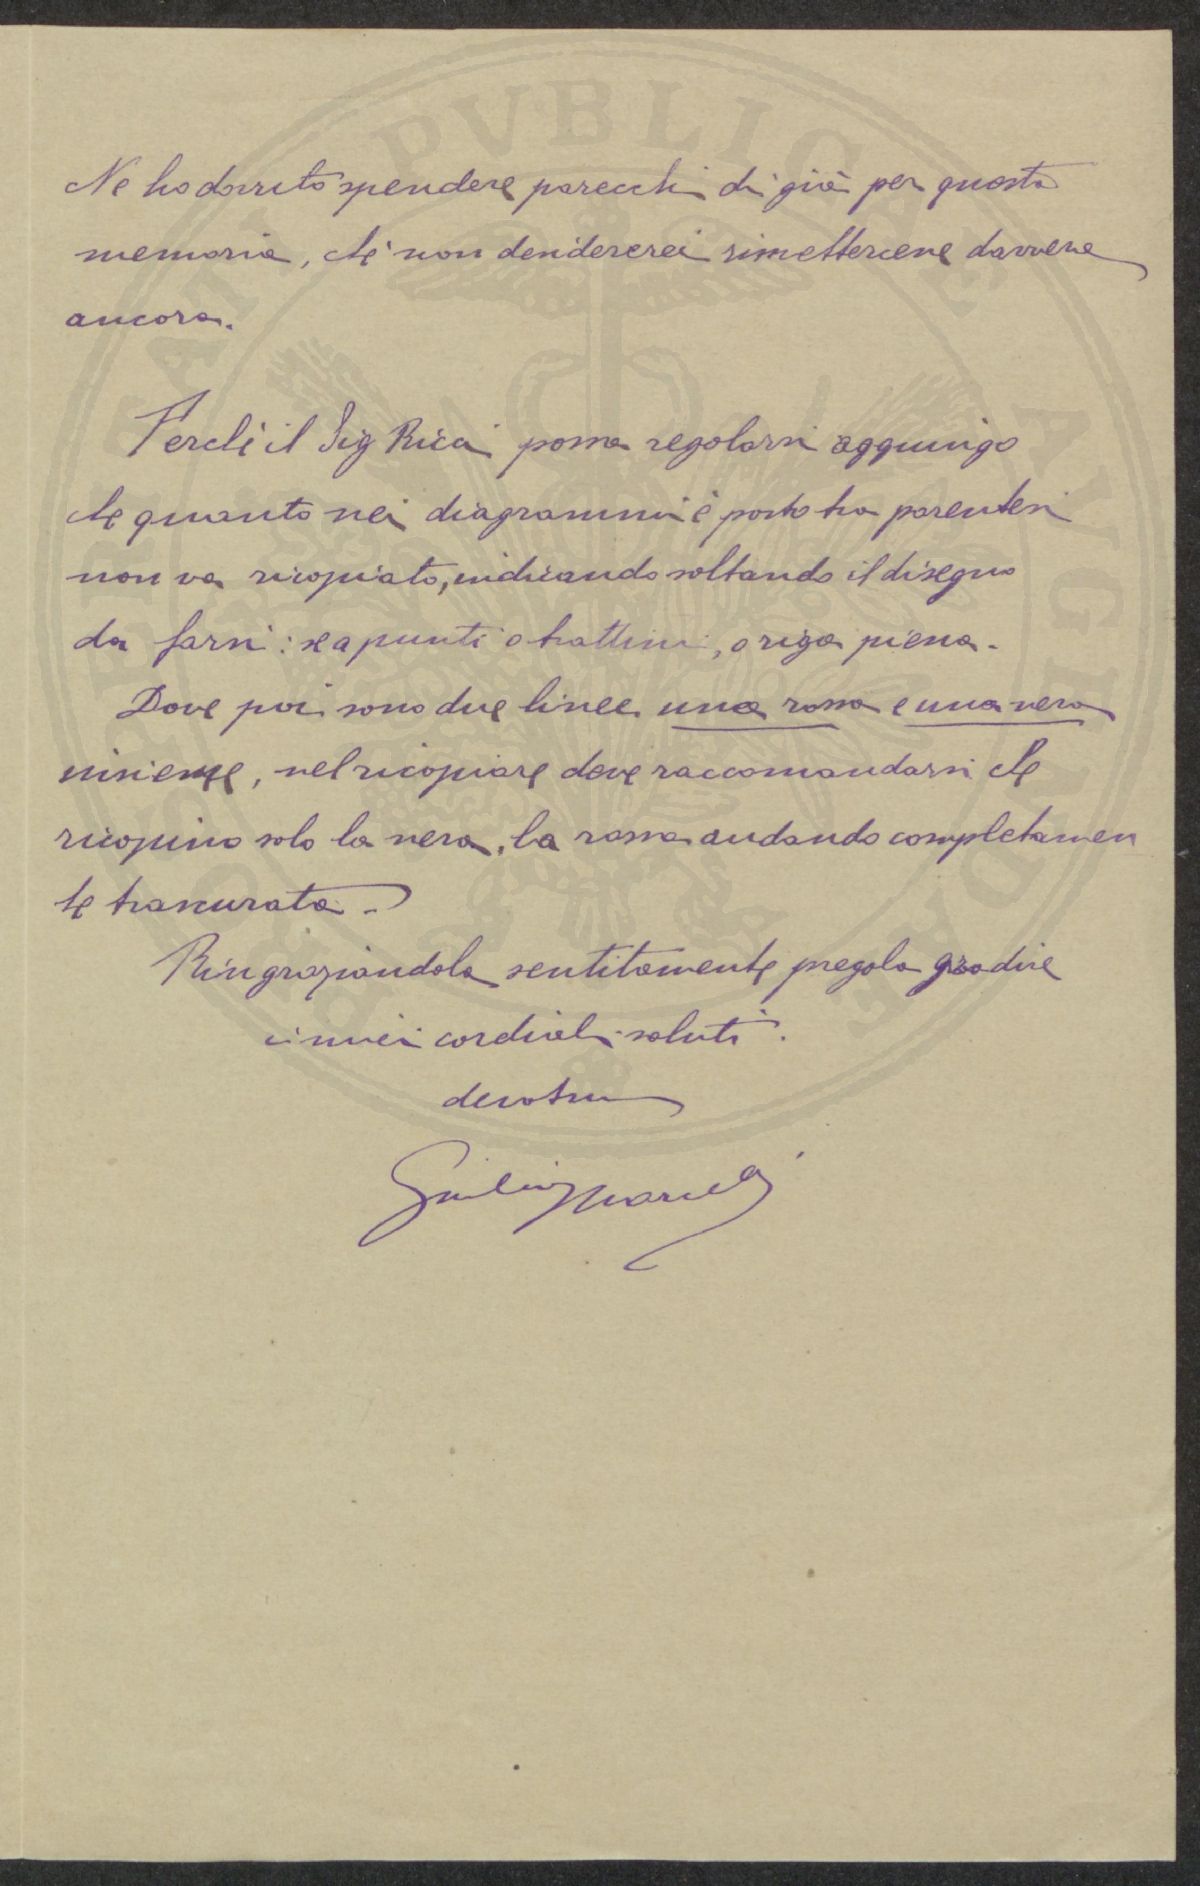 Ne ho dovuto spendere parecchi di già per questa
memoria, che non desidererei rimettercene davvero
ancora.
Perchè il Sig Ricci possa regolarsi aggiungo
che quanto nei diagrammi è posto tra parentesi
non va ricopiato, indicando soltando il disegno
da farsi: se a punti o trattini, o riga piena.
Dove poi sono due linee una rossa e una nera
insieme, nel ricopiare deve raccomandarsi che
ricopino solo la nera, la rossa andando completamen
te trascurata.
Ringraziandola sentitamente pregola gradire
i miei cordiali saluti.
devotmo
Giulio